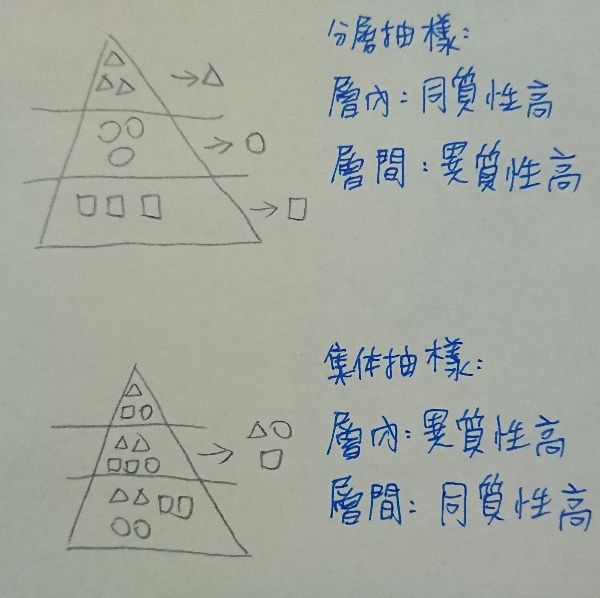 分層抽樣：
層內：同質性高
層間：異質性高
集体抽樣：
層內：異質性高
層間：同質性高